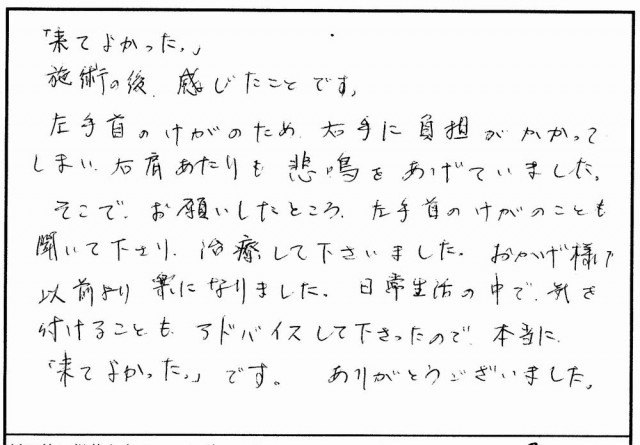 「来てよかった。」
施術の後、感じたことです。
左手首のけがのため、右手に負担がかかって
しまい、右肩あたりも悲鳴をあげていました。
そこで、お願いしたところ、左手首のけがのことも
聞いて下さり、治療して下さいました。おかげ様で
以前より楽になりました。日常生活の中で、気を
付けることも、アドバイスして下さったので、本当に
「来てよかった。」です。 ありがとうございました。